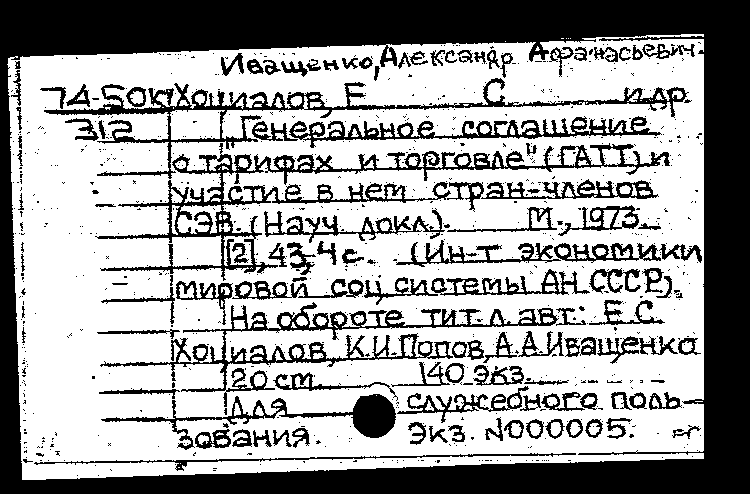 Иващенко, Александр Афанасьевич.
74-50к Хоциалов, Е С и др
312 "Генеральное соглашение
о тарифах и торговле" (ГАТТ) и
участие в нем стран-членов
СЭВ. (Науч докл.). М., 1973.
[2], 43, 4 с. (Ин-т экономики
мировой соц системы АН СССР).
На обороте тит л. авт.: Е. С.
Хоциалов, К.И. Попов, А.А. Иващенко
20 ст. 140 экз.
Для служебного поль-
зования. Экз. №000005.